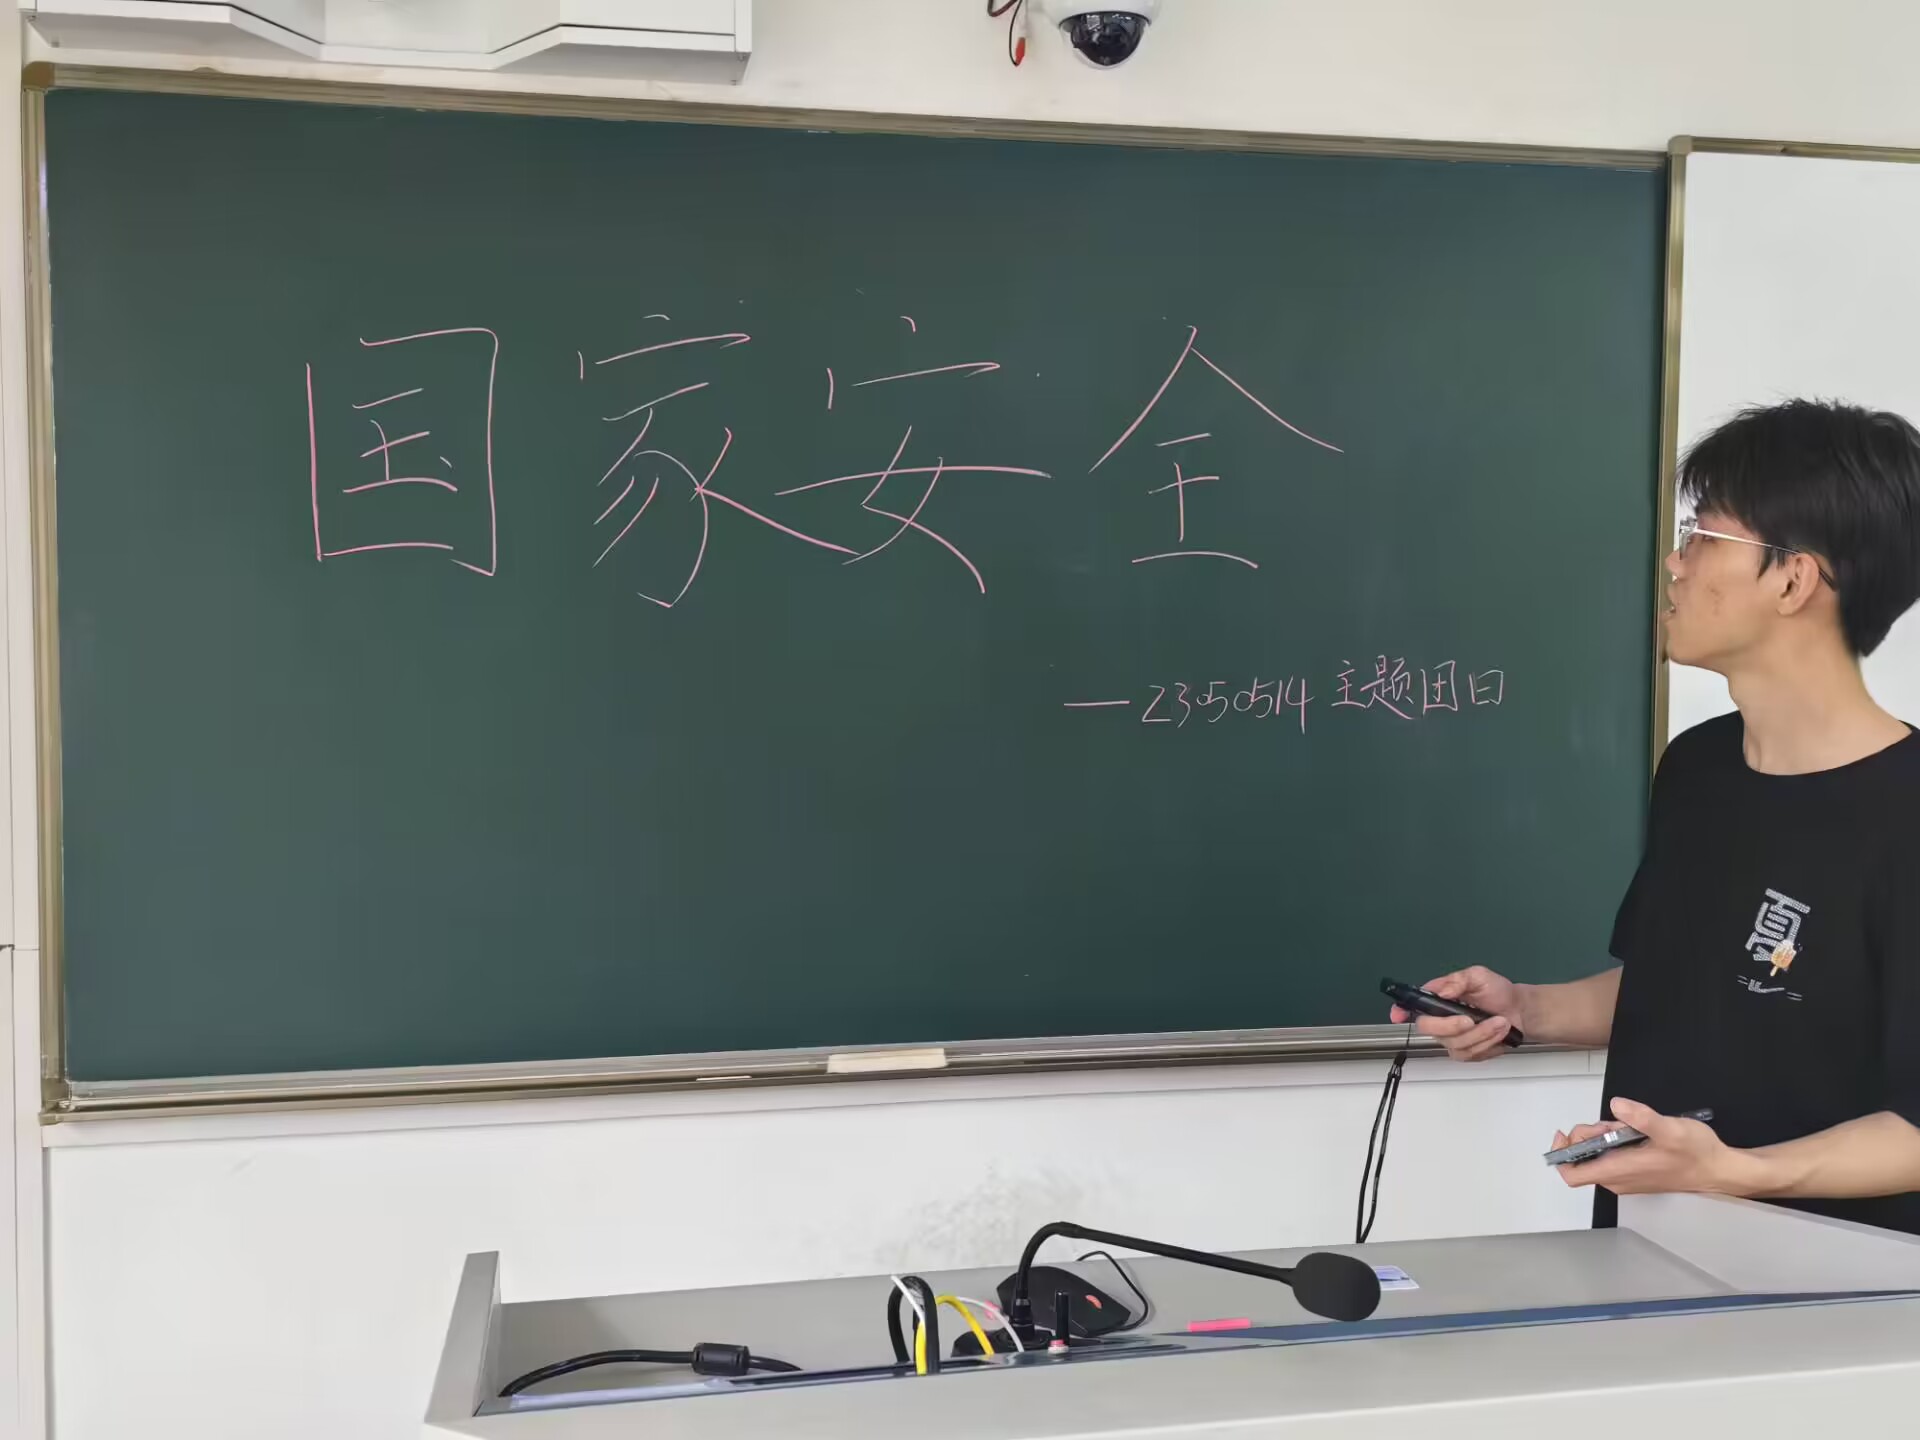 国家安全
—23050514 主题团日
夏